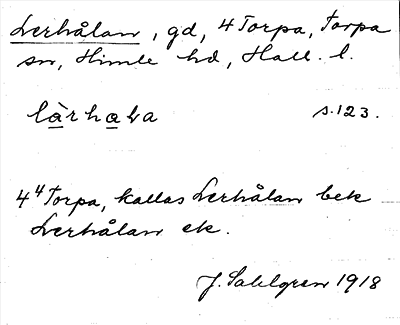 Lerhålan, gd, 4 Torpa, Torpa
sn, Himle hd, Hall. l.
làrhala s. 123.
4⁴ Torpa, kallas Lerhålan bek
Lerhålan ek.
J. Sahlgren 1918